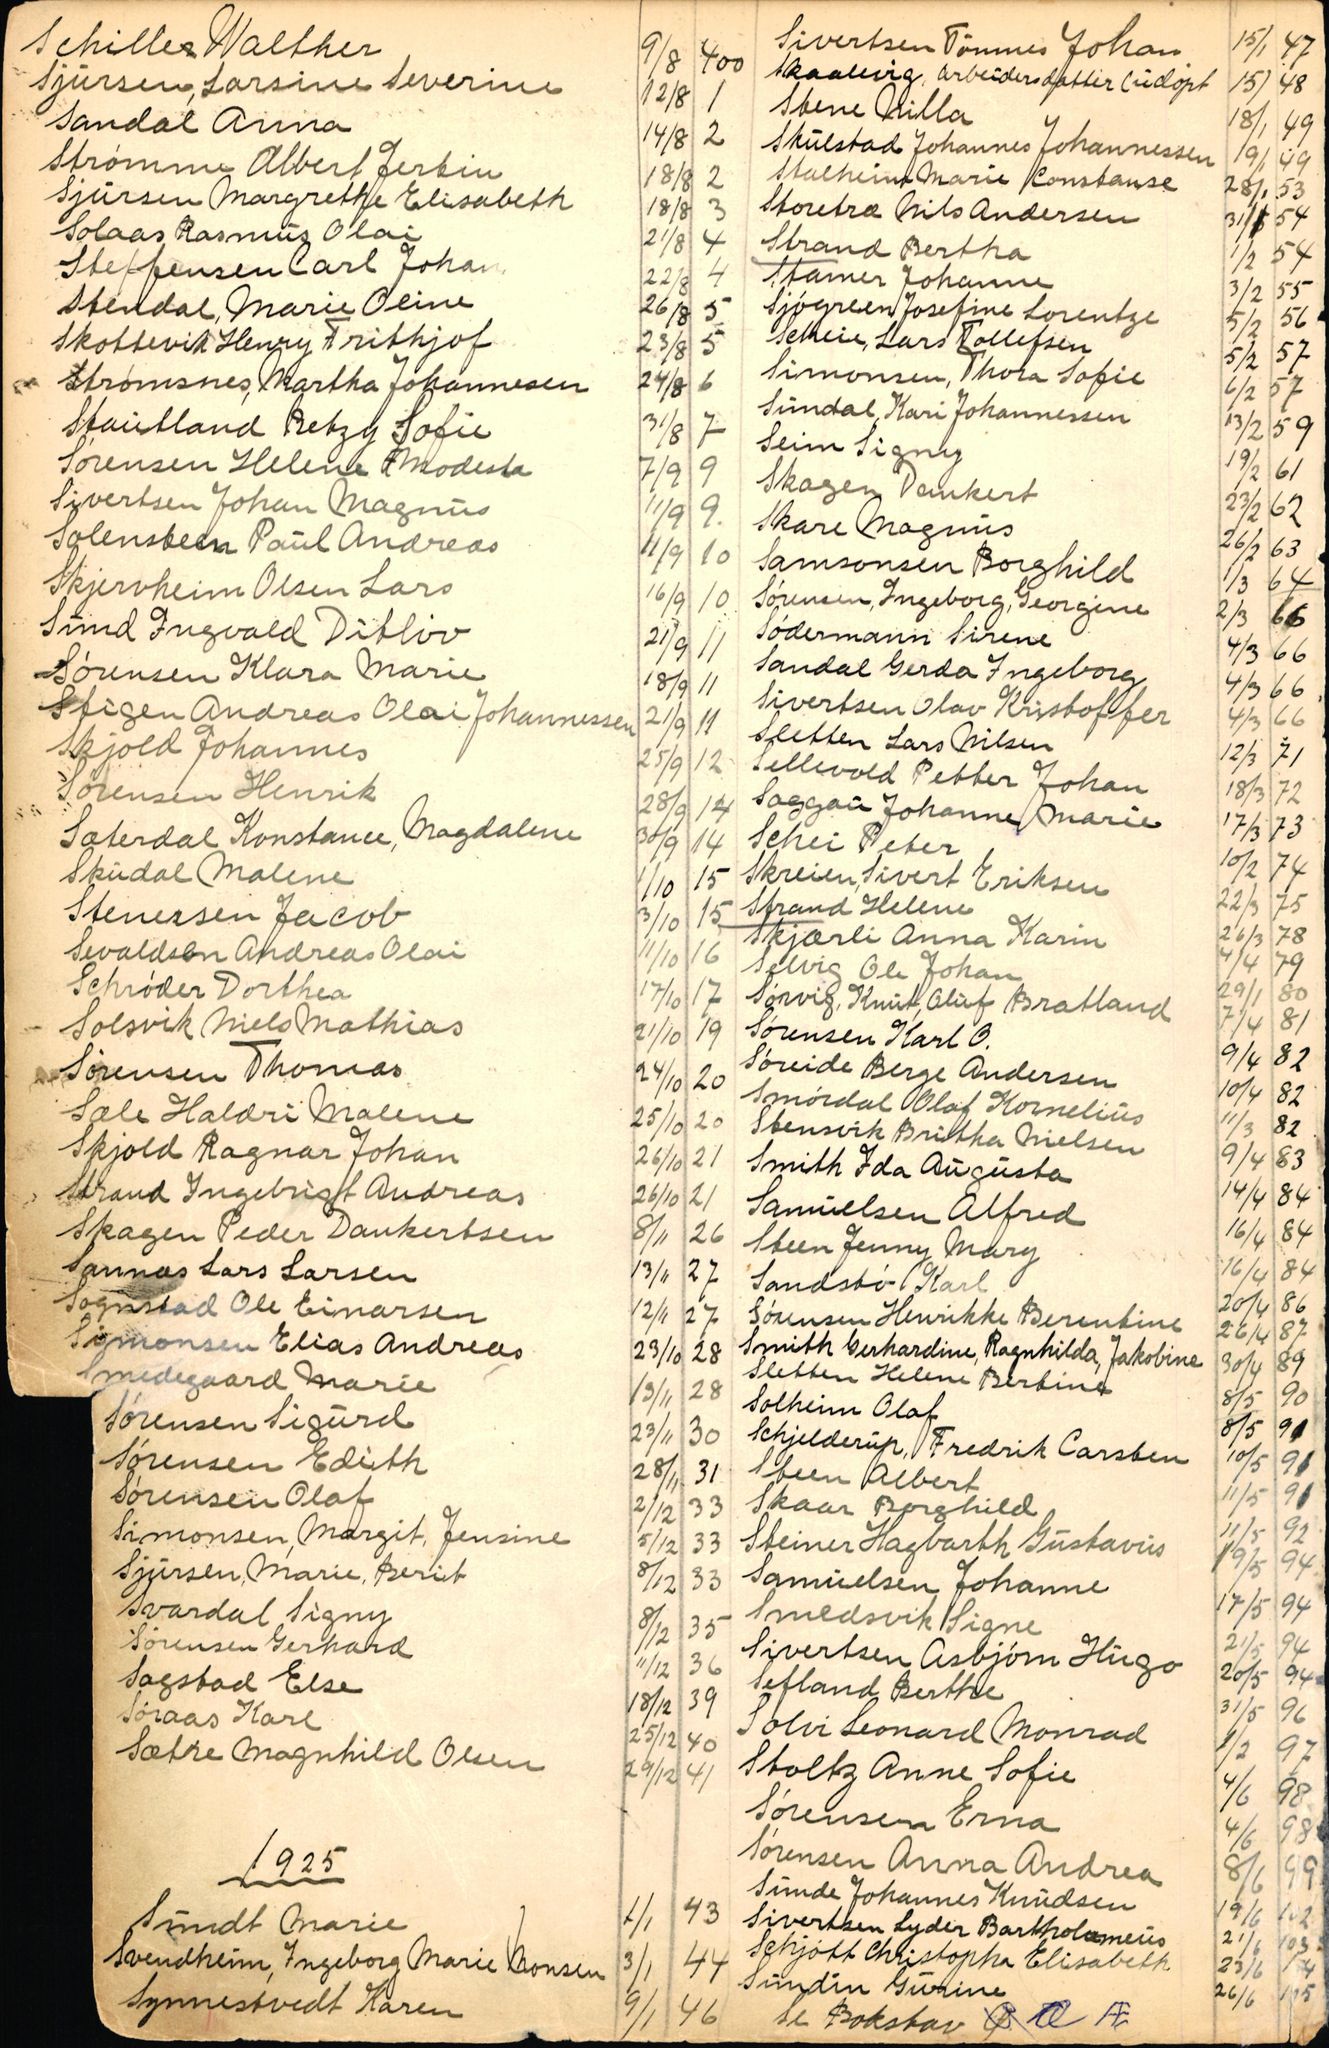 Schiller Walther 9/8 400
Sjürsen, Larsine Severine 12/8 1
Sandal Anna 14/8 2
Strømme Albert 18/8 2
Sjürsen Margrethe Elisabeth 18/8 3
Solaas Rasmus Olai 21/8 4
Steffensen Carl Johan 22/8 4
Stendal, Marie Oline 26/8 5
Skottevik Henry Frithjof 23/8 5
Strømsnes, Martha Johannesen 24/8 6
Staütland Betzy Sofie 31/8 7
Sørensen Helene Modesta 7/9 9
Sivertsen Johan Magnüs 11/9 9.
Solensteen Paül Andreas 11/9 10
Skjervheim Olsen Lars 16/9 10
Sünd Ingvald Ditlöv 21/9 11
Sørensen Klara Marie 18/9 11
Stigen Andreas Olai Johannessen 21/9 11
Skjold Johannes 25/9 12
Sørensen Henrik 28/9 14
Sæterdal Konstance, Magdalene 30/9 14
Sküdal Malene 1/10 15
Stenersen Jacob 3/10 15
Sevaldsen Andreas Olai 11/10 16
Schrøder Dorthea 17/10 17
Solsvik Niels Mathias 21/10 19
Sørensen Thomas 24/10 20
Sæle Haldri Malene 25/10 20
Skjold Ragnar Johan 26/10 21
Strand Ingebrigt Andreas 26/10 21
Skagen Peder Dankertsen 8/11 26
Sannæs Lars Larsen 13/11 27
Sognstad Ole Einarsen 12/11 27
Simonsen Elias Andreas 23/10 28
Smedegaard Marie 13/11 28
Sørensen Sigürd 23/11 30
Sørensen Edith 28/11 31
Sørensen Olaf 2/12 33
Simonsen, Margit, Jensine 5/12 33
Sjürsen, Marie, Berit 8/12 33
Svardal Signy 8/12 35
Sørensen Gerhard 11/12 36
Sagstad Else 18/12 39
Søraas Karl 25/12 40
Sætre Magnhild Olsen 29/12 41
1925
Sündt Marie 1/1 43
Svendheim, Ingeborg Marie Monsen 3/1 44
Synnestvedt Karen 9/1 46
Sivertsen Tönnes Johan 15/1 47
Skaalevig, arbeidersdatter (üdöpt 15/ 48
Stene Milla 18/1 49
Skülstad Johannes Johannessen 19/1 49
Stalheim Marie Constanse 28/1 53
Storetræ Nils Andersen 31/1 54
Strand Bertha 1/2 54
Stamer Johanne 3/2 55
Sjögreen Josefine Lorentze 5/2 56
Scheie, Lars Tollefsen 5/2 57
Simonsen, Thora Sofie 6/2 57
Sündal, Kari Johannessen 13/2 59
Seim Signy 19/2 61
Skagen Dankert 23/2 62
Skare Magnüs 26/2 63
Samsonsen Borghild 1/3 64
Sørensen, Ingeborg, Georgine 2/3 66
Södermann Sirene 4/3 66
Sandal Gerda Ingeborg 4/3 66
Sivertsen Olav Kristoffer 4/3 66
Sletten Lars Nilsen 12/3 71
Sellevold Petter Johan 18/3 72
Saggaü Johanne Marie 17/3 73
Schei Peter 10/2 74
Skreien, Sivert Eriksen 22/3 75
Strand Helene 26/3 78
Skjærli Anna Karin 4/4 79
Selvig Ole Johan 29/1 80
Sørvig, Knüt, Olüf Bratland 7/4 81
Sørensen Karl O. 9/4 82
Søreide Berge Andersen 10/4 82
Smørdal Olaf Kornelius 11/3 82
Stensvik Britha Nielsen 9/4 83
Smith Ida Augusta 14/4 84
Samüelsen Alfred 16/4 84
Steen Jenny Mary 16/4 84
Sandstö Karl 20/4 86
Sørensen Henrikke Berentine 26/4 87
Smith Gerhardine, Ragnhilda, Jakobine 30/4 89
Sletten Helene Bertine 8/5 90
Solheim Olaf 8/5 91
Schjelderüp, Fredrik Carsten 10/5 91
Steen Albert 11/5 91
Skaar Borghild 11/5 92
Steiner Hagbarth Güstavüs 19/5 94
Samüelsen Johanne 17/5 94
Smedsvik Signe 21/5 94
Sivertsen Asbjørn Hügo 20/5 94
Sefland Berthe 31/5 96
Solvi Leonard Monrad 1/2 97
Stoltz Anne Sofie 4/6 98
Sørensen Erna 4/6 98
Sørensen Anna Andrea 8/6 99
Sünde Johannes Knüdsen 19/6 102
Sivertsen Lyder Bartholomeüs 21/6 103
Schjøtt Christopha Elisabeth 23/6
Sündin Gürine 26/6 105
Se Bokstav Æ